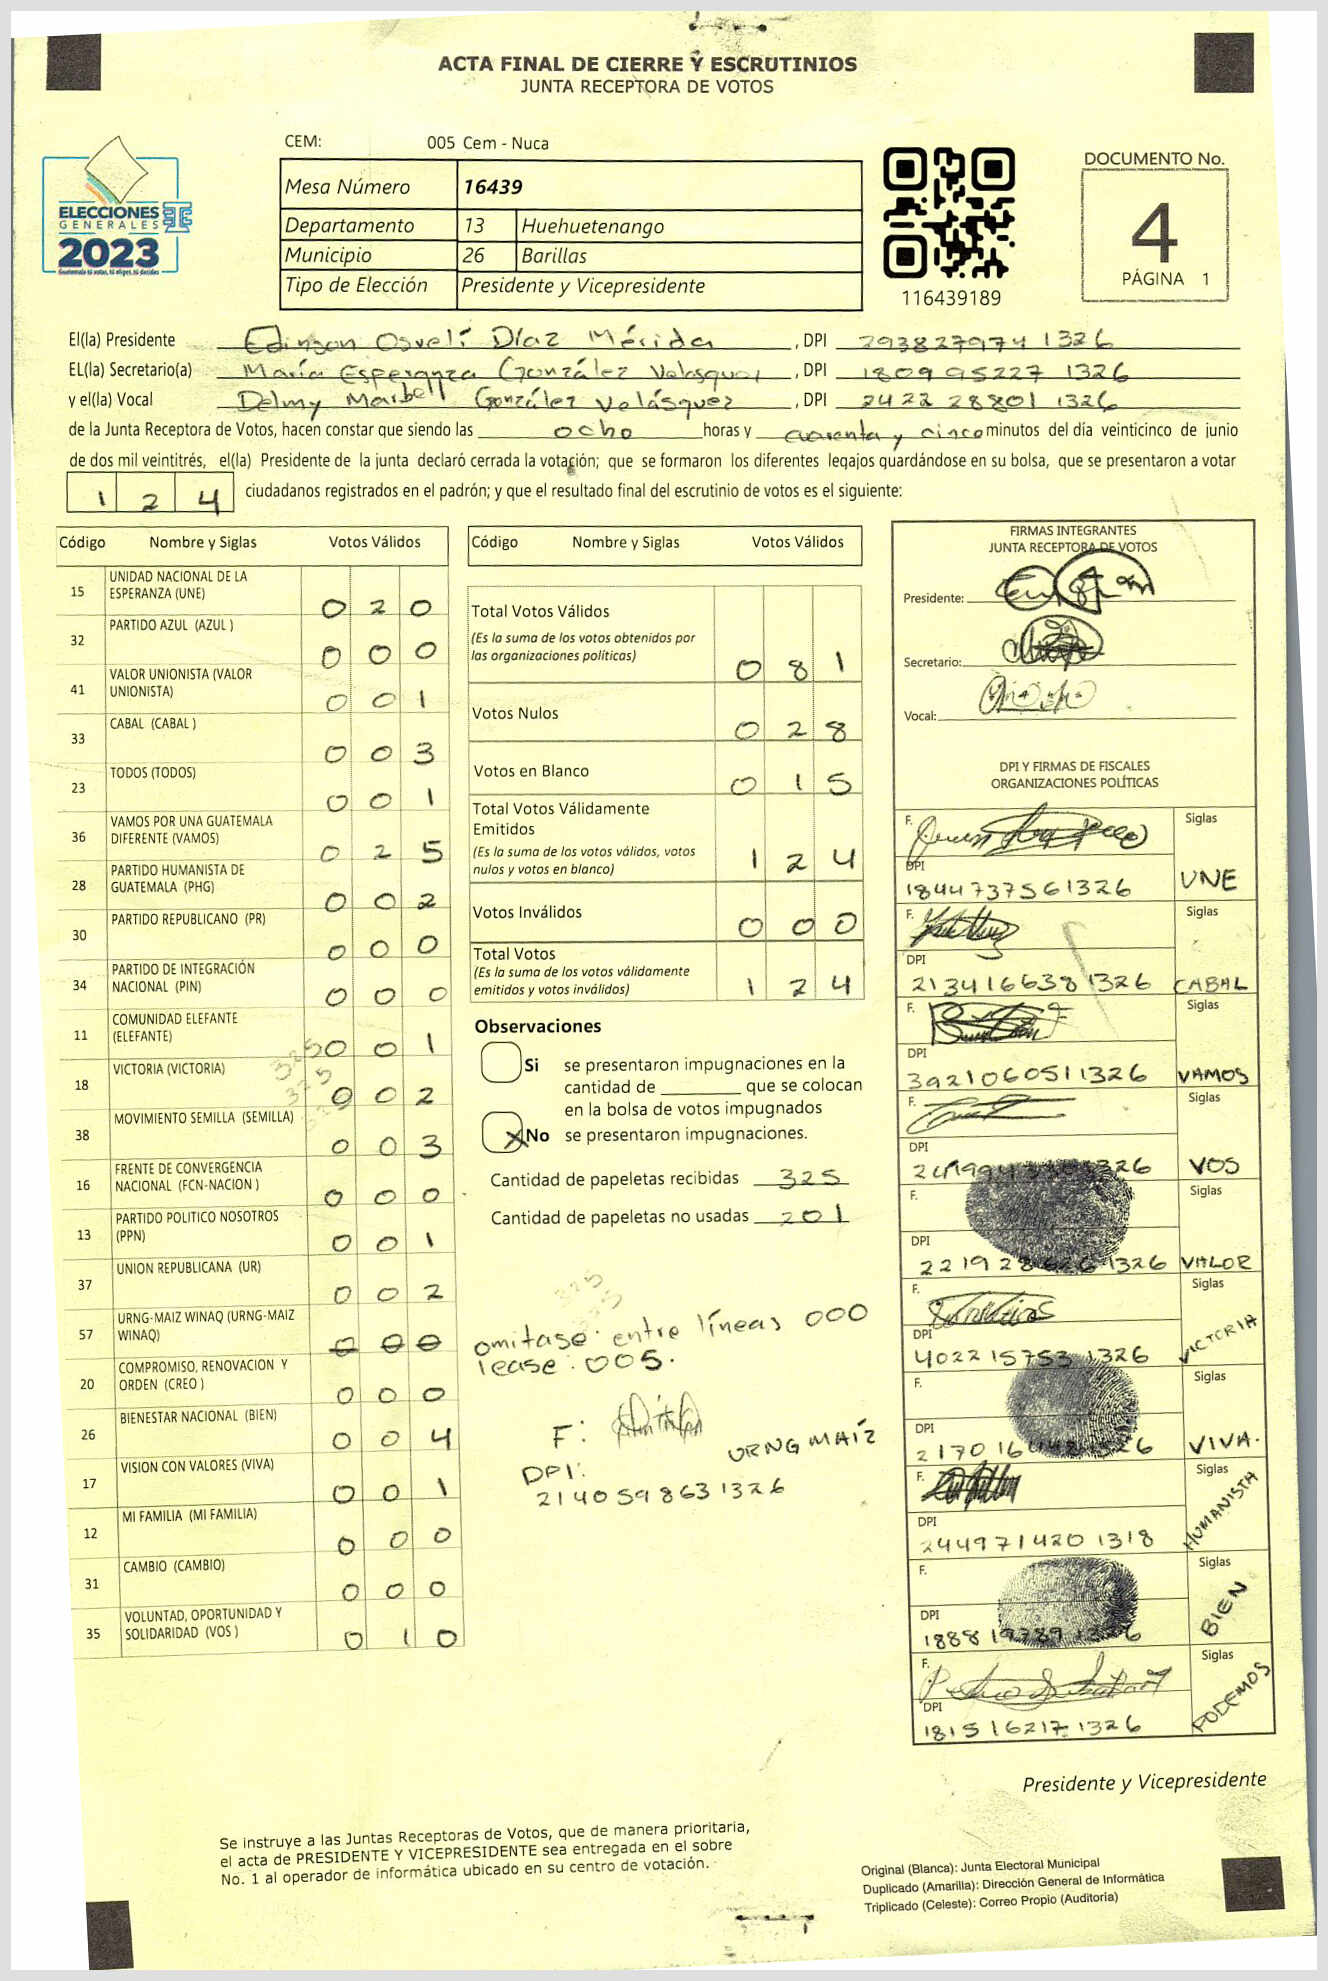 ACTA FINAL DE CIERRE Y ESCRUTINIOS
JUNTA RECEPTORA DE VOTOS
CEM: 005 Cem - Nuca
Mesa Número 16439
Departamento 13 Huehuetenango
Municipio 26 Barillas
Tipo de Elección Presidente y Vicepresidente
ELECCIONES
GENERALES
2023
Guatemala tú votas, tú eliges, tú decides
116439189
DOCUMENTO No.
4
PÁGINA 1
El(la) Presidente Edinson Osvelí Díaz Mérida, DPI 293827974 1326
EL(la) Secretario(a) María Esperanza González Velasquez, DPI 180995227 1326
y el(la) Vocal Delmy Marbell González Velásquez, DPI 2422 28801 1326
de la Junta Receptora de Votos, hacen constar que siendo las ocho horas y cuarenta y cinco minutos del día veinticinco de junio
de dos mil veintitrés, el(la) Presidente de la junta declaró cerrada la votación; que se formaron los diferentes legajos guardándose en su bolsa, que se presentaron a votar
1 2 4 ciudadanos registrados en el padrón; y que el resultado final del escrutinio de votos es el siguiente:
Código Nombre y Siglas Votos Válidos
15 UNIDAD NACIONAL DE LA
ESPERANZA (UNE) 0 2 0
32 PARTIDO AZUL (AZUL ) 0 0 0
41 VALOR UNIONISTA (VALOR
UNIONISTA) 0 0 1
33 CABAL (CABAL ) 0 0 3
23 TODOS (TODOS) 0 0 1
36 VAMOS POR UNA GUATEMALA
DIFERENTE (VAMOS) 0 2 5
28 PARTIDO HUMANISTA DE
GUATEMALA (PHG) 0 0 2
30 PARTIDO REPUBLICANO (PR) 0 0 0
34 PARTIDO DE INTEGRACIÓN
NACIONAL (PIN) 0 0 0
11 COMUNIDAD ELEFANTE
(ELEFANTE) 0 0 1
325
325
18 VICTORIA (VICTORIA) 0 0 2
38 MOVIMIENTO SEMILLA (SEMILLA) 0 0 3
16 FRENTE DE CONVERGENCIA
NACIONAL (FCN-NACION ) 0 0 0
13 PARTIDO POLITICO NOSOTROS
(PPN) 0 0 1
37 UNION REPUBLICANA (UR) 0 0 2
57 URNG-MAIZ WINAQ (URNG-MAIZ
WINAQ) 0 0 0
20 COMPROMISO, RENOVACION Y
ORDEN (CREO ) 0 0 0
26 BIENESTAR NACIONAL (BIEN) 0 0 4
17 VISION CON VALORES (VIVA) 0 0 1
12 MI FAMILIA (MI FAMILIA) 0 0 0
31 CAMBIO (CAMBIO) 0 0 0
35 VOLUNTAD, OPORTUNIDAD Y
SOLIDARIDAD (VOS ) 0 1 0
Código Nombre y Siglas Votos Válidos
Total Votos Válidos
(Es la suma de los votos obtenidos por
las organizaciones políticas) 0 8 1
Votos Nulos 0 2 8
Votos en Blanco 0 1 5
Total Votos Válidamente
Emitidos
(Es la suma de los votos válidos, votos
nulos y votos en blanco) 1 2 4
Votos Inválidos 0 0 0
Total Votos
(Es la suma de los votos válidamente
emitidos y votos inválidos) 1 2 4
Observaciones
Si se presentaron impugnaciones en la
cantidad de ________ que se colocan
en la bolsa de votos impugnados
X No se presentaron impugnaciones.
Cantidad de papeletas recibidas 325
Cantidad de papeletas no usadas 201
325
omitase: entre líneas 000
lease: 005.
F:
URNG MAÍZ
DPI:
214059863 1326
FIRMAS INTEGRANTES
JUNTA RECEPTORA DE VOTOS
Presidente:
Secretario:
Vocal:
DPI Y FIRMAS DE FISCALES
ORGANIZACIONES POLÍTICAS
F. Siglas
DPI
1844737561326 UNE
F. Siglas
DPI
213416638 1326 CABAL
F. Siglas
DPI
3921060511326 VAMOS
F. Siglas
DPI
1326 VOS
F. Siglas
DPI
1326 VALOR
F. Siglas
DPI
4022 15753 1326 VICTORIA
F. Siglas
DPI
VIVA.
F. Siglas
DPI
244971420 1318 HUMANISTA
F. Siglas
DPI
BIEN
F. Siglas
DPI
181516217 1326 PODEMOS
Presidente y Vicepresidente
Se instruye a las Juntas Receptoras de Votos, que de manera prioritaria,
el acta de PRESIDENTE Y VICEPRESIDENTE sea entregada en el sobre
No. 1 al operador de informática ubicado en su centro de votación.
Original (Blanca): Junta Electoral Municipal
Duplicado (Amarilla): Dirección General de Informática
Triplicado (Celeste): Correo Propio (Auditoría)